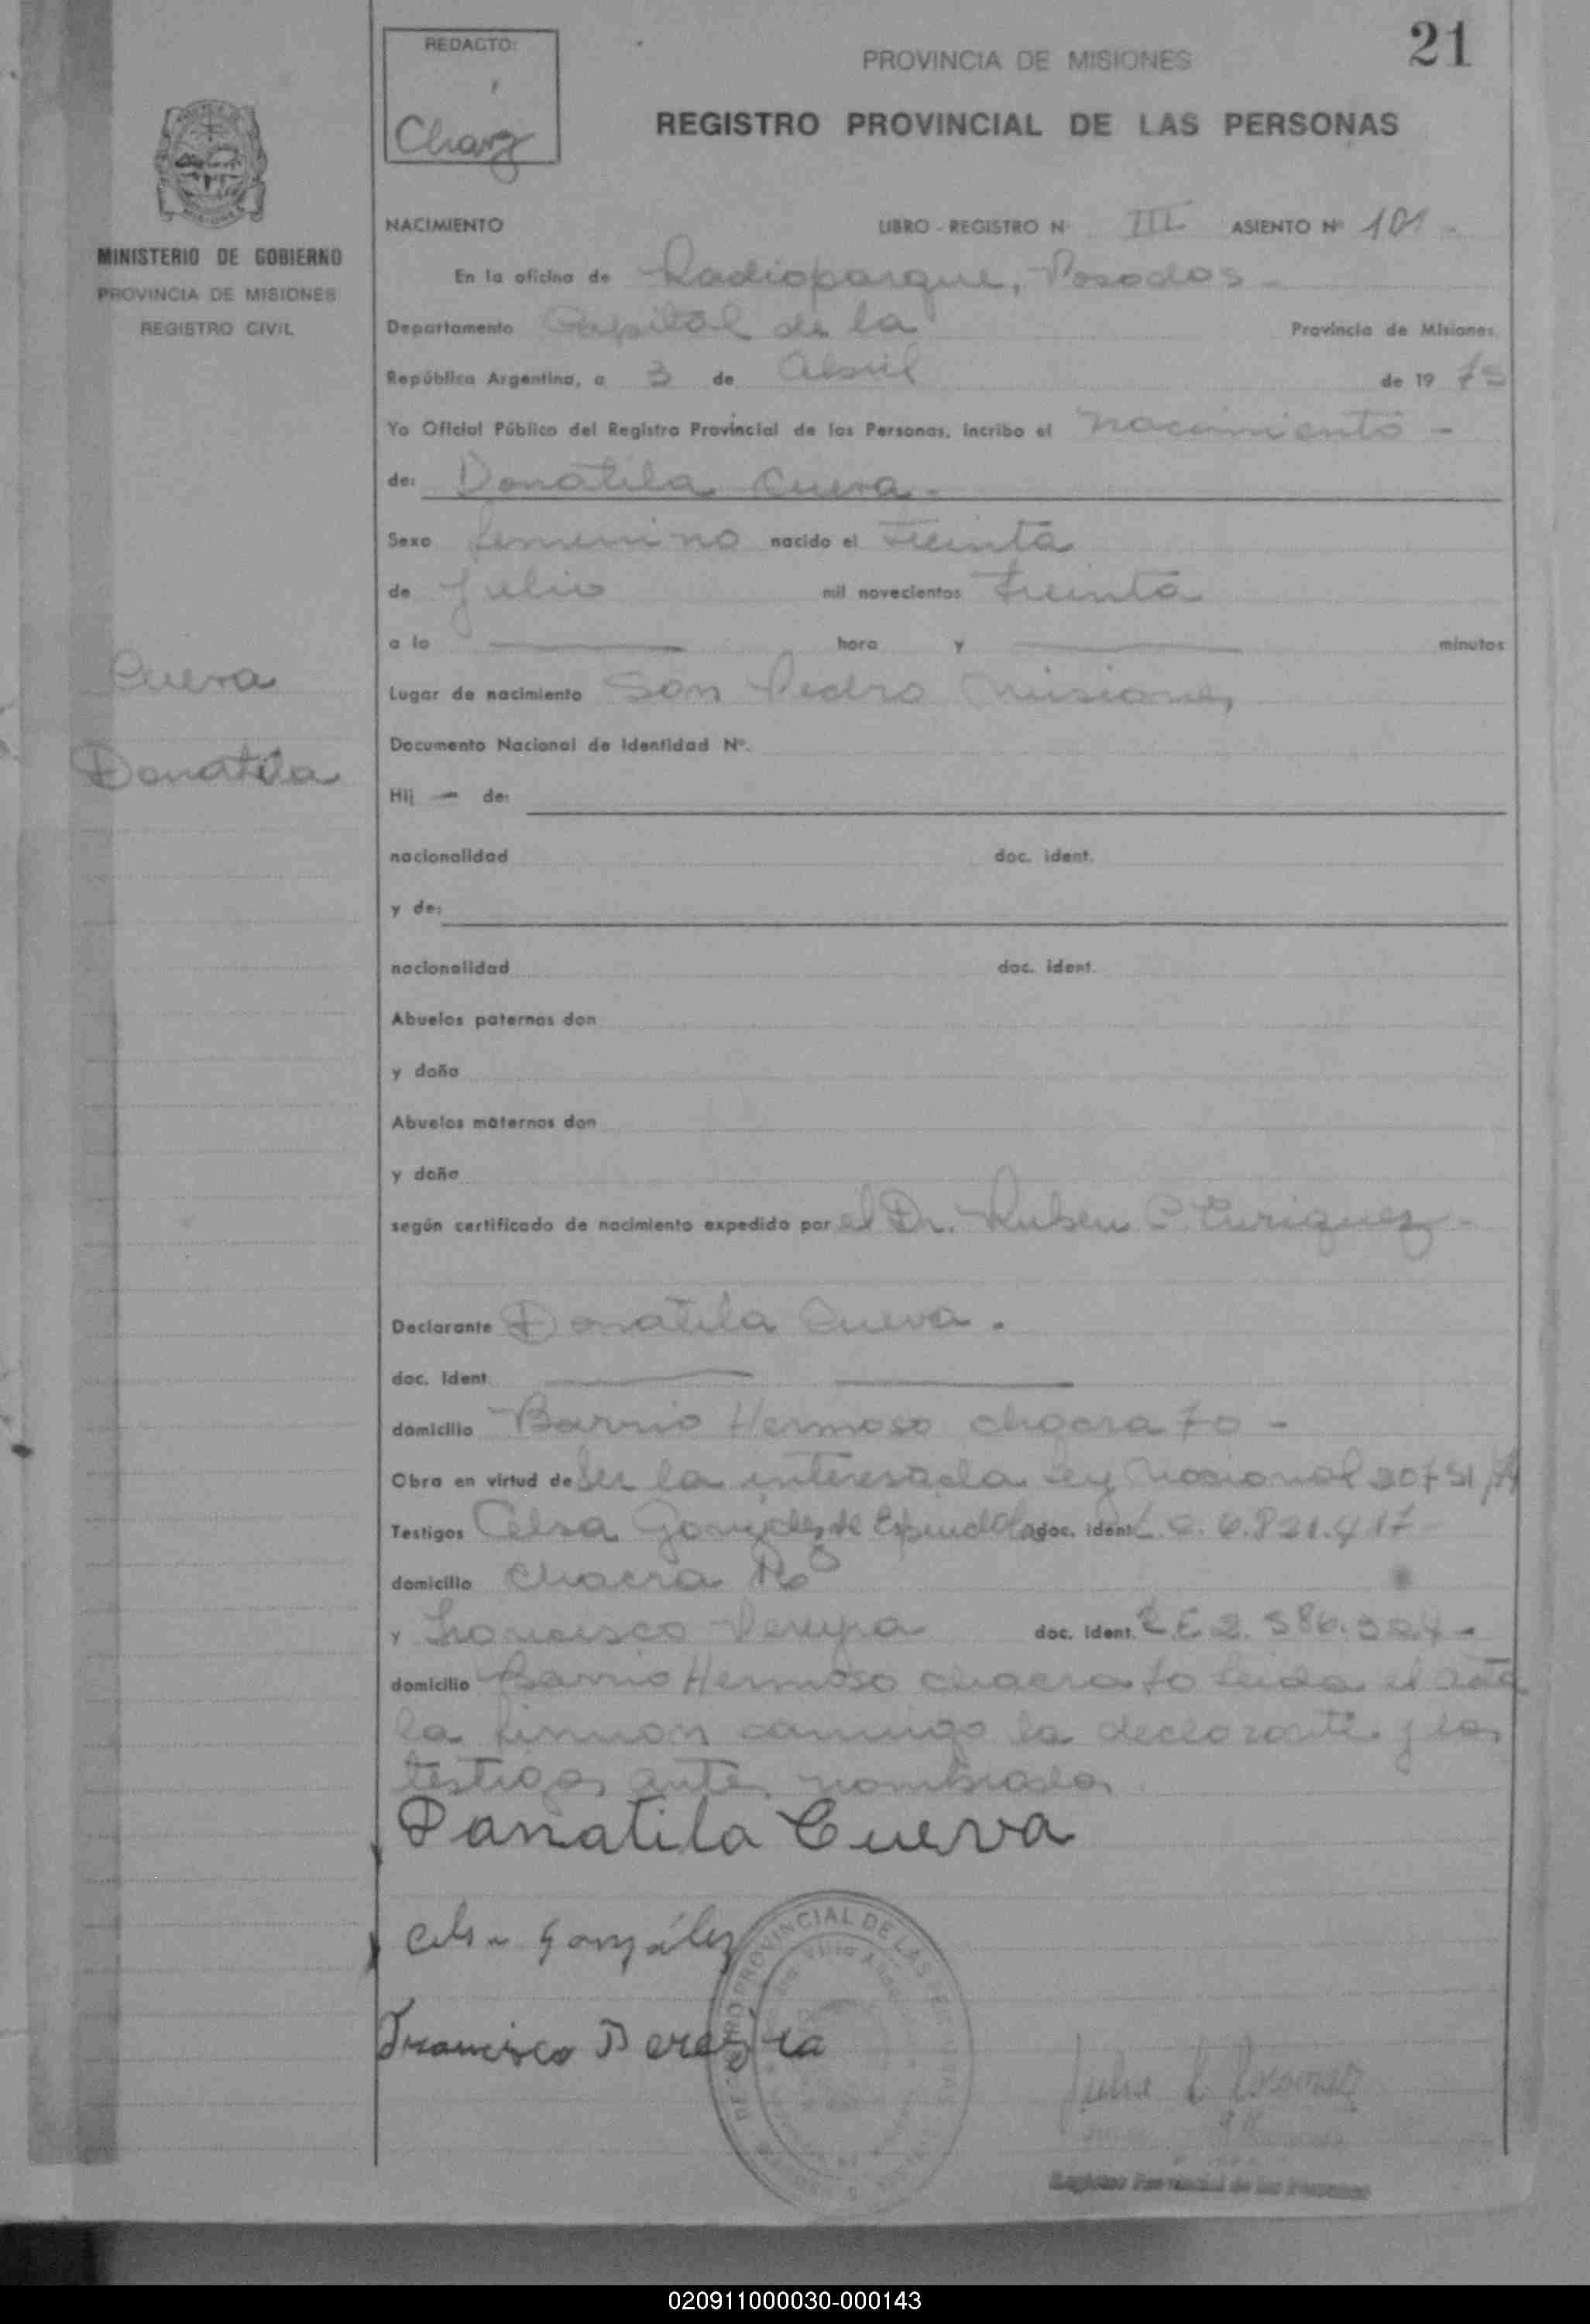 21
REDACTO:
Chavz
PROVINCIA DE MISIONES
REGISTRO PROVINCIAL DE LAS PERSONAS
MINISTERIO DE GOBIERNO
PROVINCIA DE MISIONES
REGISTRO CIVIL
NACIMIENTO LIBRO - REGISTRO Nº III ASIENTO Nº 101 -
En la oficina de Radioparque, Posadas -
Departamento Capital de la Provincia de Misiones,
República Argentina, a 3 de Abril de 19 75
Yo Oficial Público del Registro Provincial de las Personas, incribo el nacimiento -
de: Donatila Cueva -
Sexo femenino nacido el treinta
de julio mil novecientos treinta
a la hora y minutos
Cueva
Donatila
Lugar de nacimiento San Pedro Misiones
Documento Nacional de Identidad Nº.
Hij — de:
nacionalidad doc. ident.
y de:
nacionalidad doc. ident.
Abuelos paternos don
y doña
Abuelos maternos don
y doña
según certificado de nacimiento expedido por el Dr. Ruben C. Enriquez -
Declarante Donatila Cueva .
doc. ident.
domicilio Barrio Hermoso chacra 70 -
Obra en virtud de ser la interesada Ley Nacional 20751
Testigos Celsa Gonzalez de Espindola doc. ident. L.C. 6.821.417 -
domicilio Chacra
y Francisco Pereyra doc. ident. L.E. 2.586.324 -
domicilio Barrio Hermoso chacra 70 Leida el acta
la firman conmigo la declarante y los
testigos antes nombrados
Danatila Cueva
Celsa González
Francisco Pereyra
REGISTRO PROVINCIAL DE LAS PERSONAS
Registro Provincial de las Personas
020911000030-000143